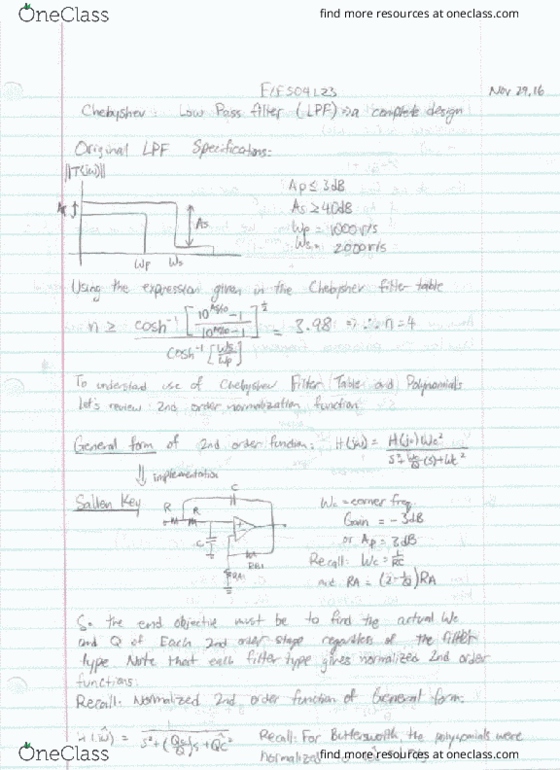 OneClass
find more resources at oneclass.com
E/ES04L23
Nov 29, 16
Chebyshev: Low Pass filter (LPF) => a complete design
Original LPF Specifications:
||T(jω)||
Ap
As
Wp Ws
Ap ≤ 3dB
As ≥ 40dB
Wp = 1000 r/s
Ws = 2000 r/s
Using the expression given in the Chebyshev filter table
n ≥ cosh⁻¹ [10^As/10 -1 / 10^Ap/10 -1]^½ / cosh⁻¹ [Ws/Wp] = 3.98 => ∴ n = 4
To understand use of Chebyshev Filter (Table and) Polynomials
let's review 2nd order normalization function
General form of 2nd order function: H(jω) = H(jo)Wc² / S² + Wc/Q (s) + Wc²
⇓ implementation
Sallen Key
R R
C
C
RA
Wc = corner freq
Gain = -3dB
or Ap = 3dB
Recall: Wc = 1/RC
RA = (2-1/Q)RA
So the end objective must be to find the actual Wc
and Q of Each 2nd order stage regardless of the filter
type. Note that each filter type gives normalized 2nd order
functions.
Recall: Normalized 2nd order function of General form:
Recall: For Butterworth, the polynomials were
normalized
OneClass
find more resources at oneclass.com